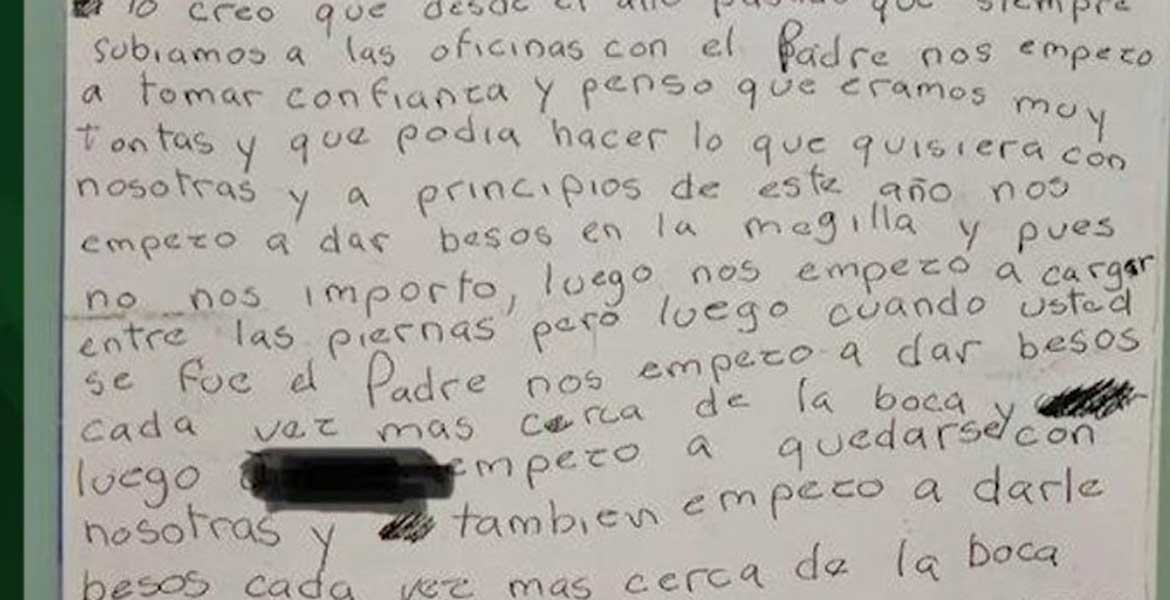 Yo creo que desde el año pasado que siempre
subiamos a las oficinas con el Padre nos empezo
a tomar confianza y penso que eramos muy
tontas y que podia hacer lo que quisiera con
nosotras y a principios de este año nos
empezo a dar besos en la megilla y pues
no nos importo, luego nos empezo a cargar
entre las piernas pero luego cuando usted
se fue el Padre nos empezo a dar besos
cada vez mas cerca de la boca y
luego empezo a quedarse con
nosotras y tambien empezo a darle
besos cada vez mas cerca de la boca